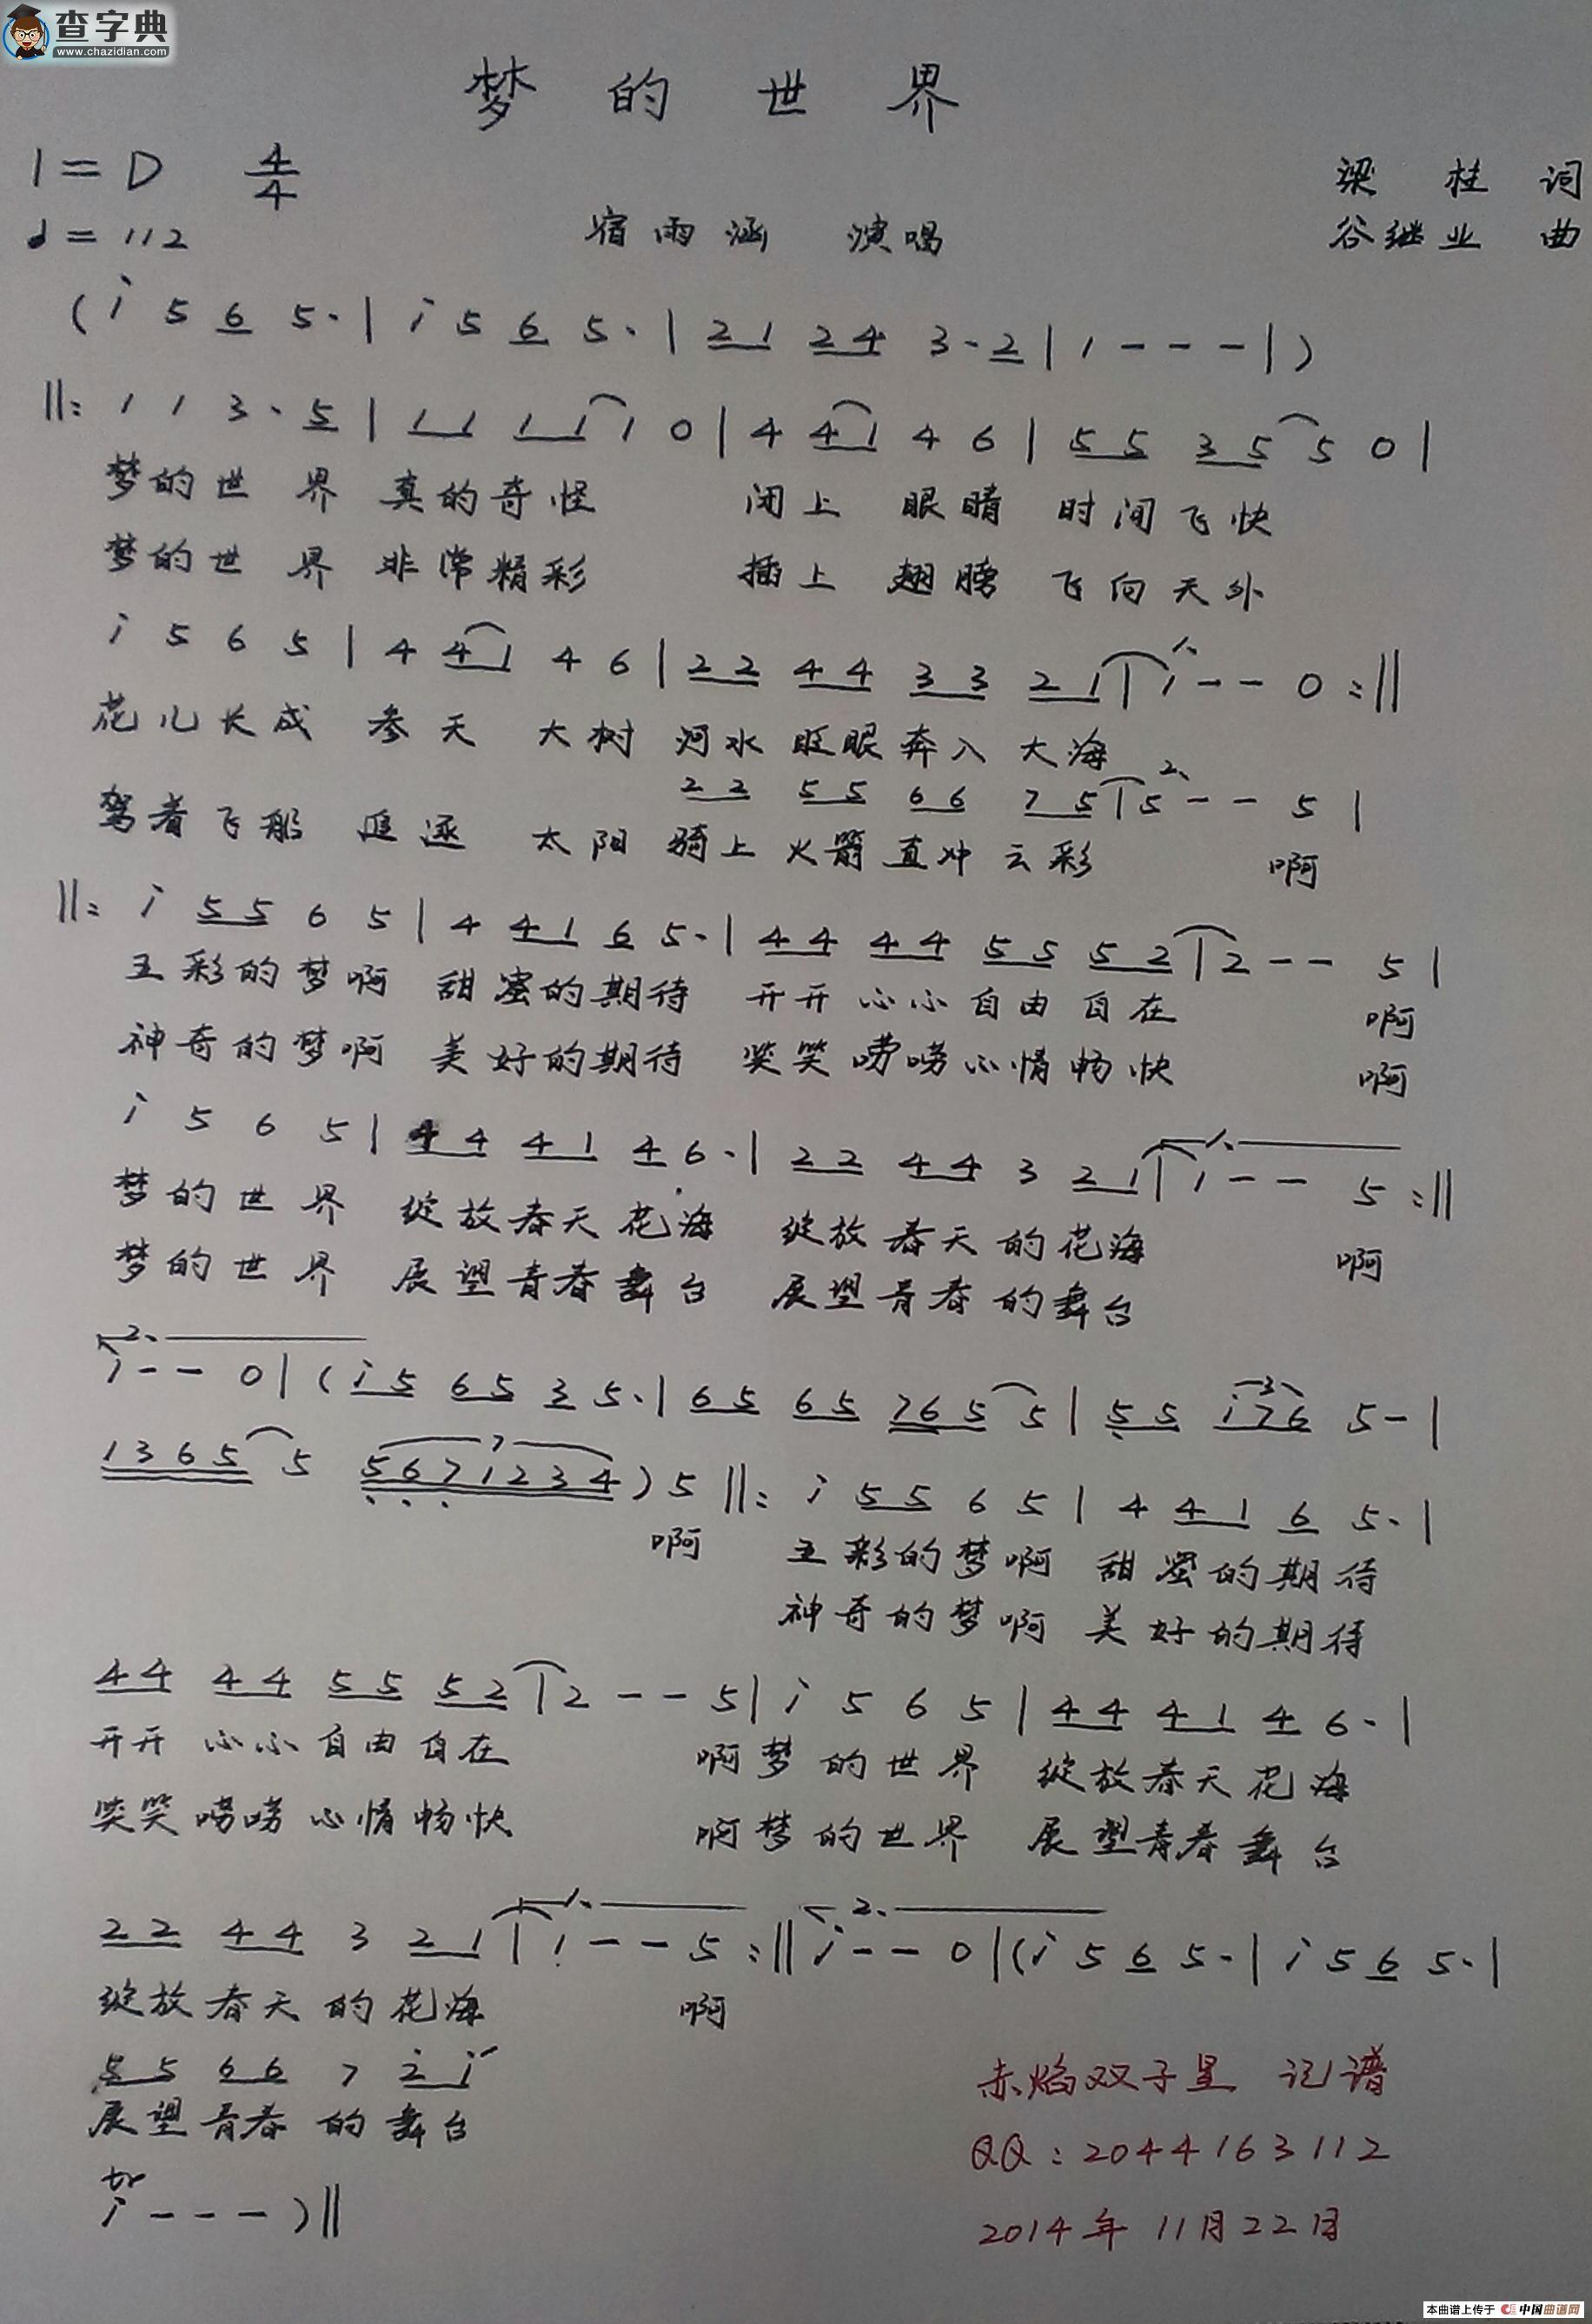 查字典
www.chazidian.com
梦 的 世 界
1=D 4/4
梁 桂 词
♩=112 宿雨涵 演唱 谷继业 曲
(i 5 6 5·| i 5 6 5·| 21 24 3·2| 1 - - - |)
‖: 1 1 3·5 | 11 11 1 0 | 4 41 4 6 | 55 35 5 0 |
梦的世 界 真的奇怪 闭上 眼睛 时间飞快
梦的世 界 非常精彩 插上 翅膀 飞向天外
i 5 6 5 | 4 41 4 6 | 22 44 33 21 | 1 - - 0 :‖
花儿长成 参天 大树 河水眨眼奔入大海
22 55 66 75 | 5 - - 5 |
驾着飞船 追逐 太阳 骑上火箭直冲云彩 啊
‖: i 55 6 5 | 4 41 6 5·| 44 44 55 52 | 2 - - 5 |
五彩的梦啊 甜蜜的期待 开开心心自由自在 啊
神奇的梦啊 美好的期待 笑笑唠唠心情畅快 啊
i 5 6 5 | 44 41 4 6·| 22 44 3 21 | 1 - - 5 :‖
梦的世界 绽放春天花海 绽放春天的花海 啊
梦的世界 展望青春舞台 展望青春的舞台
2.
i - - 0 | (i5 65 3 5·| 65 65 765 5 | 55 i76 5 - |
1365 5 5671234) 5 ‖: i 55 6 5 | 4 41 6 5·|
啊 五彩的梦啊 甜蜜的期待
神奇的梦啊 美好的期待
44 44 55 52 | 2 - - 5 | i 5 6 5 | 44 41 4 6·|
开开心心自由自在 啊梦的世界 绽放春天花海
笑笑唠唠心情畅快 啊梦的世界 展望青春舞台
22 44 3 21 | 1 - - 5 :‖ i - - 0 | (i 5 6 5·| i 5 6 5·|
绽放春天的花海 啊
55 66 7 2i
展望青春的舞台
tr
i - - - )‖
赤焰双子星 记谱
QQ:2044163112
2014年11月22日
本曲谱上传于 中国曲谱网